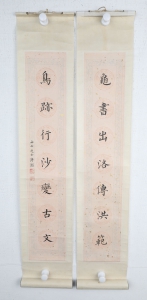 龜書出洛傳洪範
鳥跡行沙變古文